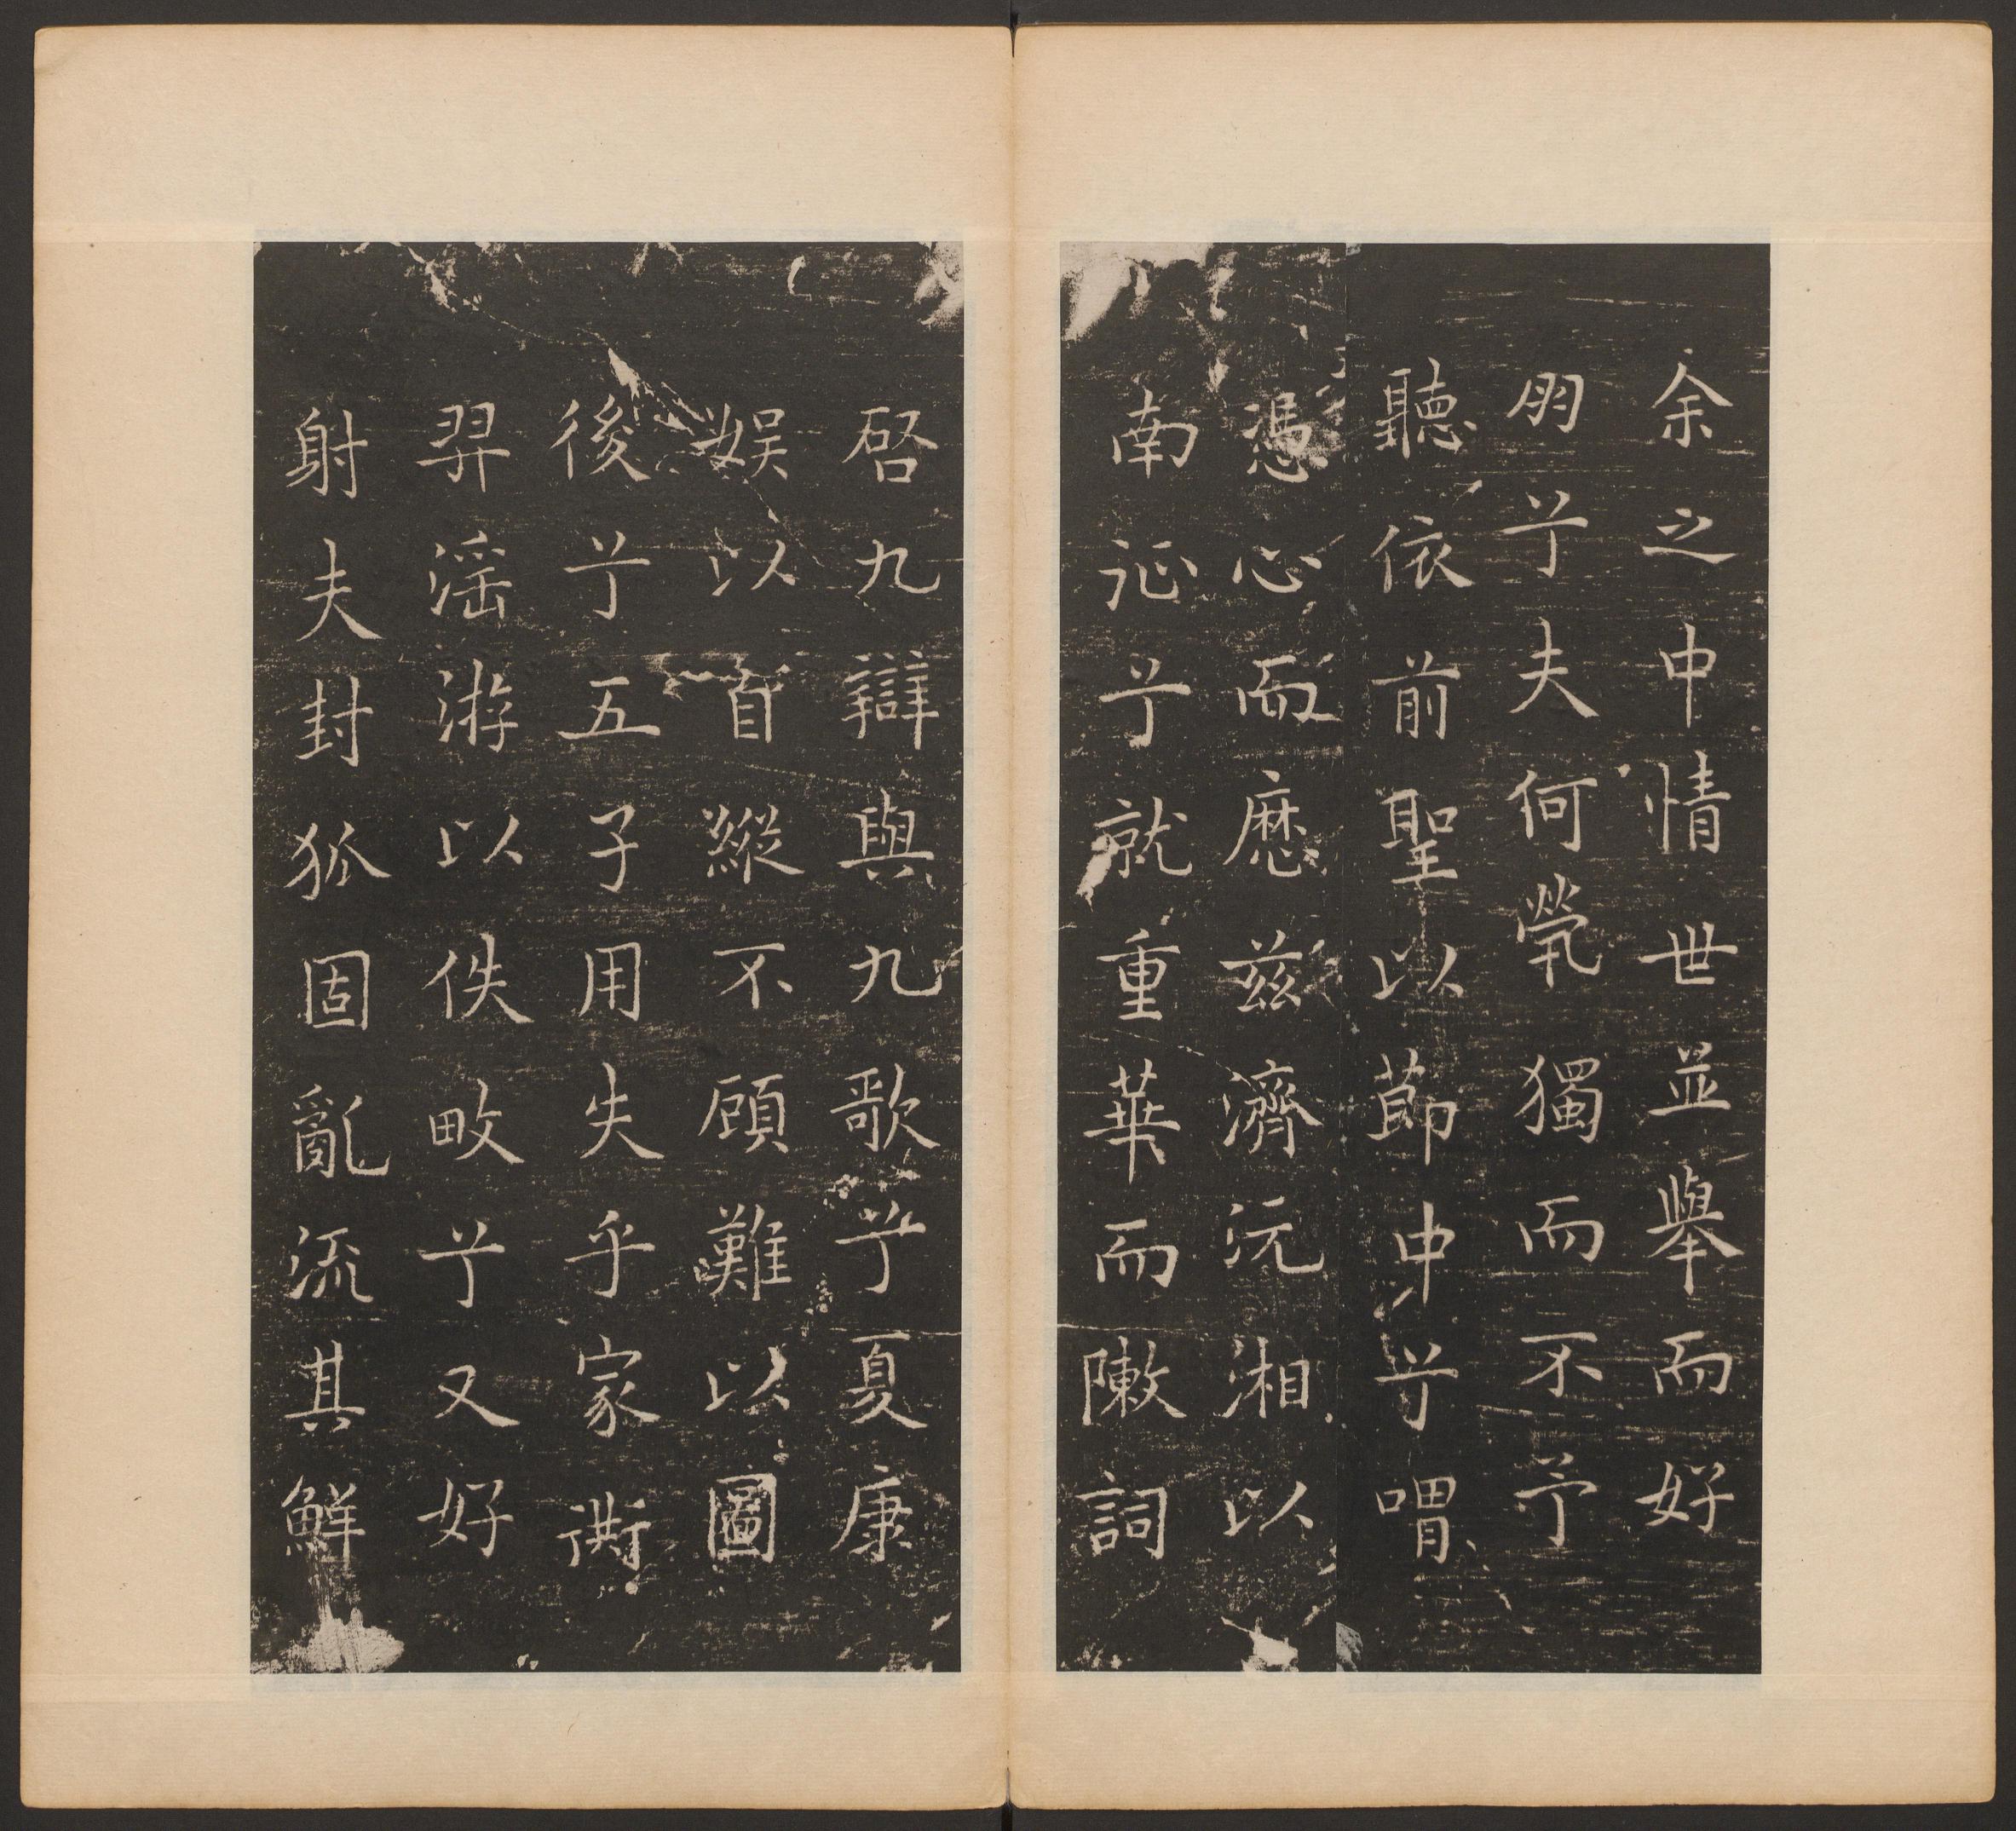 余之中情世並舉而好
朋兮夫何煢獨而不予
聽依前聖以節中兮喟
憑心而歷茲濟沅湘以
南征兮就重華而敶詞
啓九辯與九歌兮夏康
娛以自縱不顧難以圖
後兮五子用失乎家衖
羿淫游以佚畋兮又好
射夫封狐固亂流其鮮